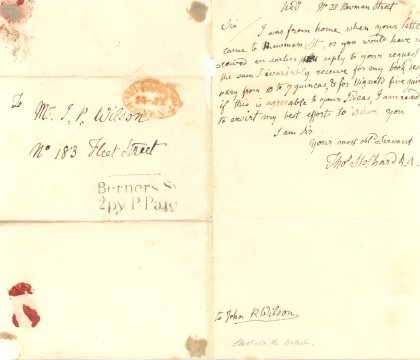 To
Mr. J. P. Wilson
No 183 Fleet Street
Berners S
2py P Paid
No 28 Newman Street
Sir
I was from home when your lette
came to Newman St, or you would have re
ceived an earlier reply to your request
the sum I invariably receive for my book de
vary from 10 to 7 guineas, & for vignets five
if this is agreeable to your Ideas, I am read
to exert my best efforts to serve you
I am Sir
Your most obt Servant
Thos Stothard R.A.
to John P. Wilson
Stothard the Artist.